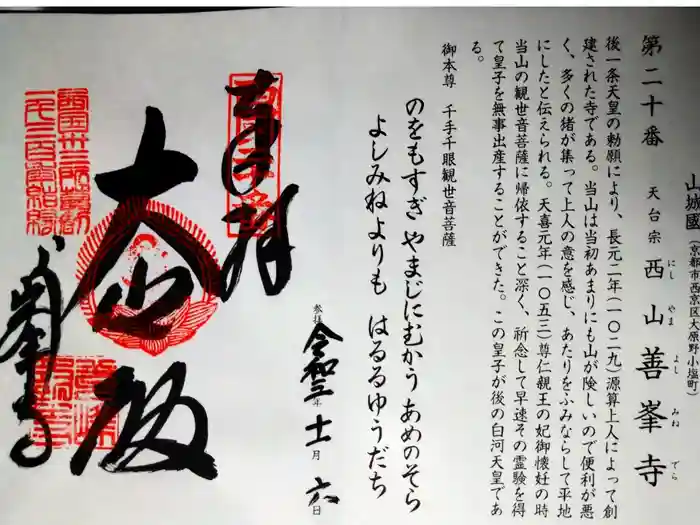 山城國(京都市西京区大原野小塩町)
第二十番 天台宗 西山善峯寺
にしやまよしみねでら
後一条天皇の勅願により、長元二年(一〇二九)源算上人によって創
建された寺である。当山は当初あまりにも山が険しいので便利が悪
く、多くの猪が集って上人の意を感じ、あたりをふみならして平地
にしたと伝えられる。天喜元年(一〇五三)尊仁親王の妃御懐妊の時
当山の観世音菩薩に帰依すること深く、祈念して早速その霊験を得
て皇子を無事出産することができた。この皇子が後の白河天皇であ
る。
御本尊 千手千眼観世音菩薩
のをもすぎ やまじにむかう あめのそら
よしみねよりも はるるゆうだち
参拝 令和三年 十一月 六日
奉拝
大悲殿
善峯寺